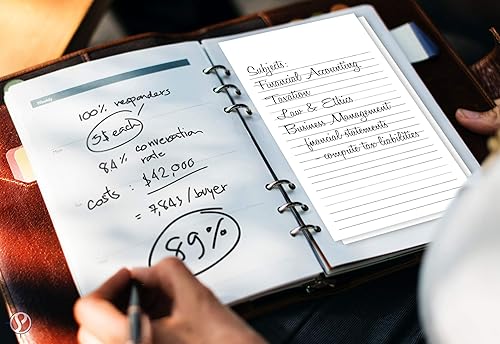 Weekly
100% responders
5$ each
84% conversation
rate
costs : $42,000
= 7,843/buyer
89%
Subjects:
Financial Accounting
Taxation
Law & Ethics
Business Management
financial statements
compute tax liabilities